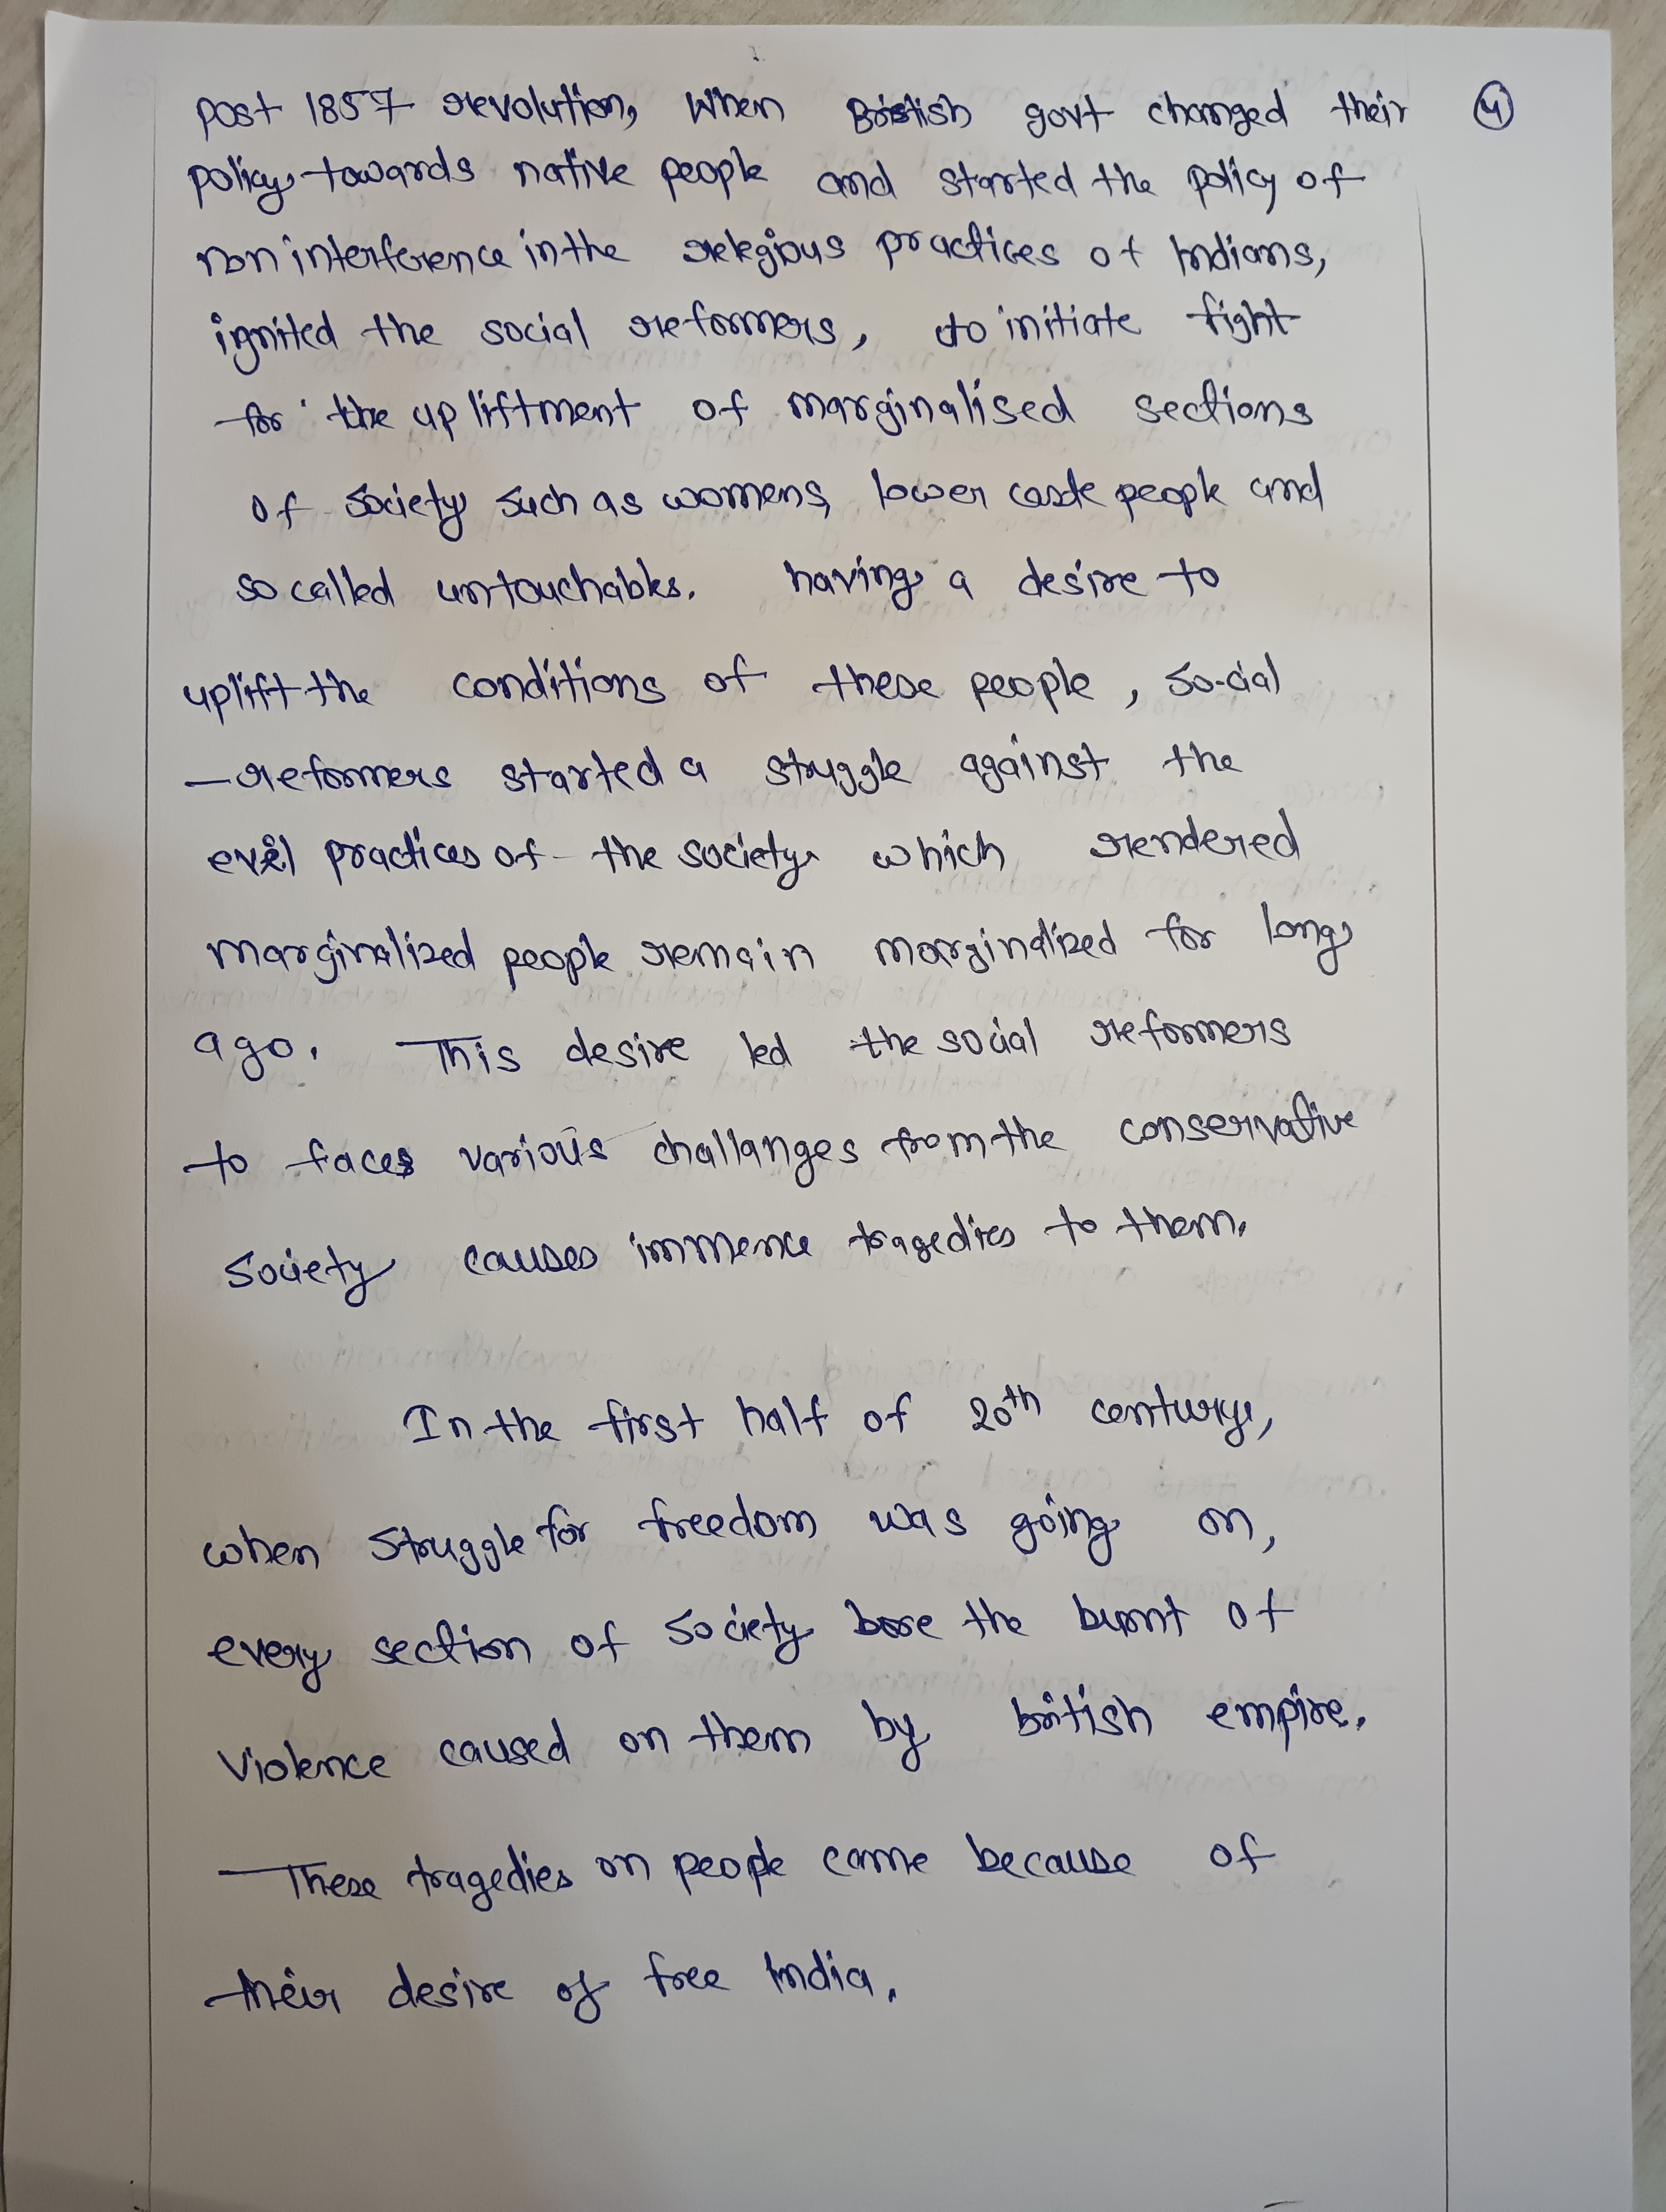 post 1857 revolution, When British govt changed their ④
policy towards native people and started the policy of
non interference in the relegious practices of Indians,
ignited the social reformers, to initiate fight
for the upliftment of marginalised sections
of society such as womens, lower caste people and
so called untouchables. having a desire to
uplift the conditions of these people, social
reformers started a struggle against the
evil practices of the society which rendered
marginalized people remain marginalized for long
ago. This desire led the social reformers
to faces various challanges from the conservative
society causes immence tragedies to them.
In the first half of 20th century,
when struggle for freedom was going on,
every section of society bore the burnt of
violence caused on them by british empire.
These tragedies on people came because of
their desire of free India.